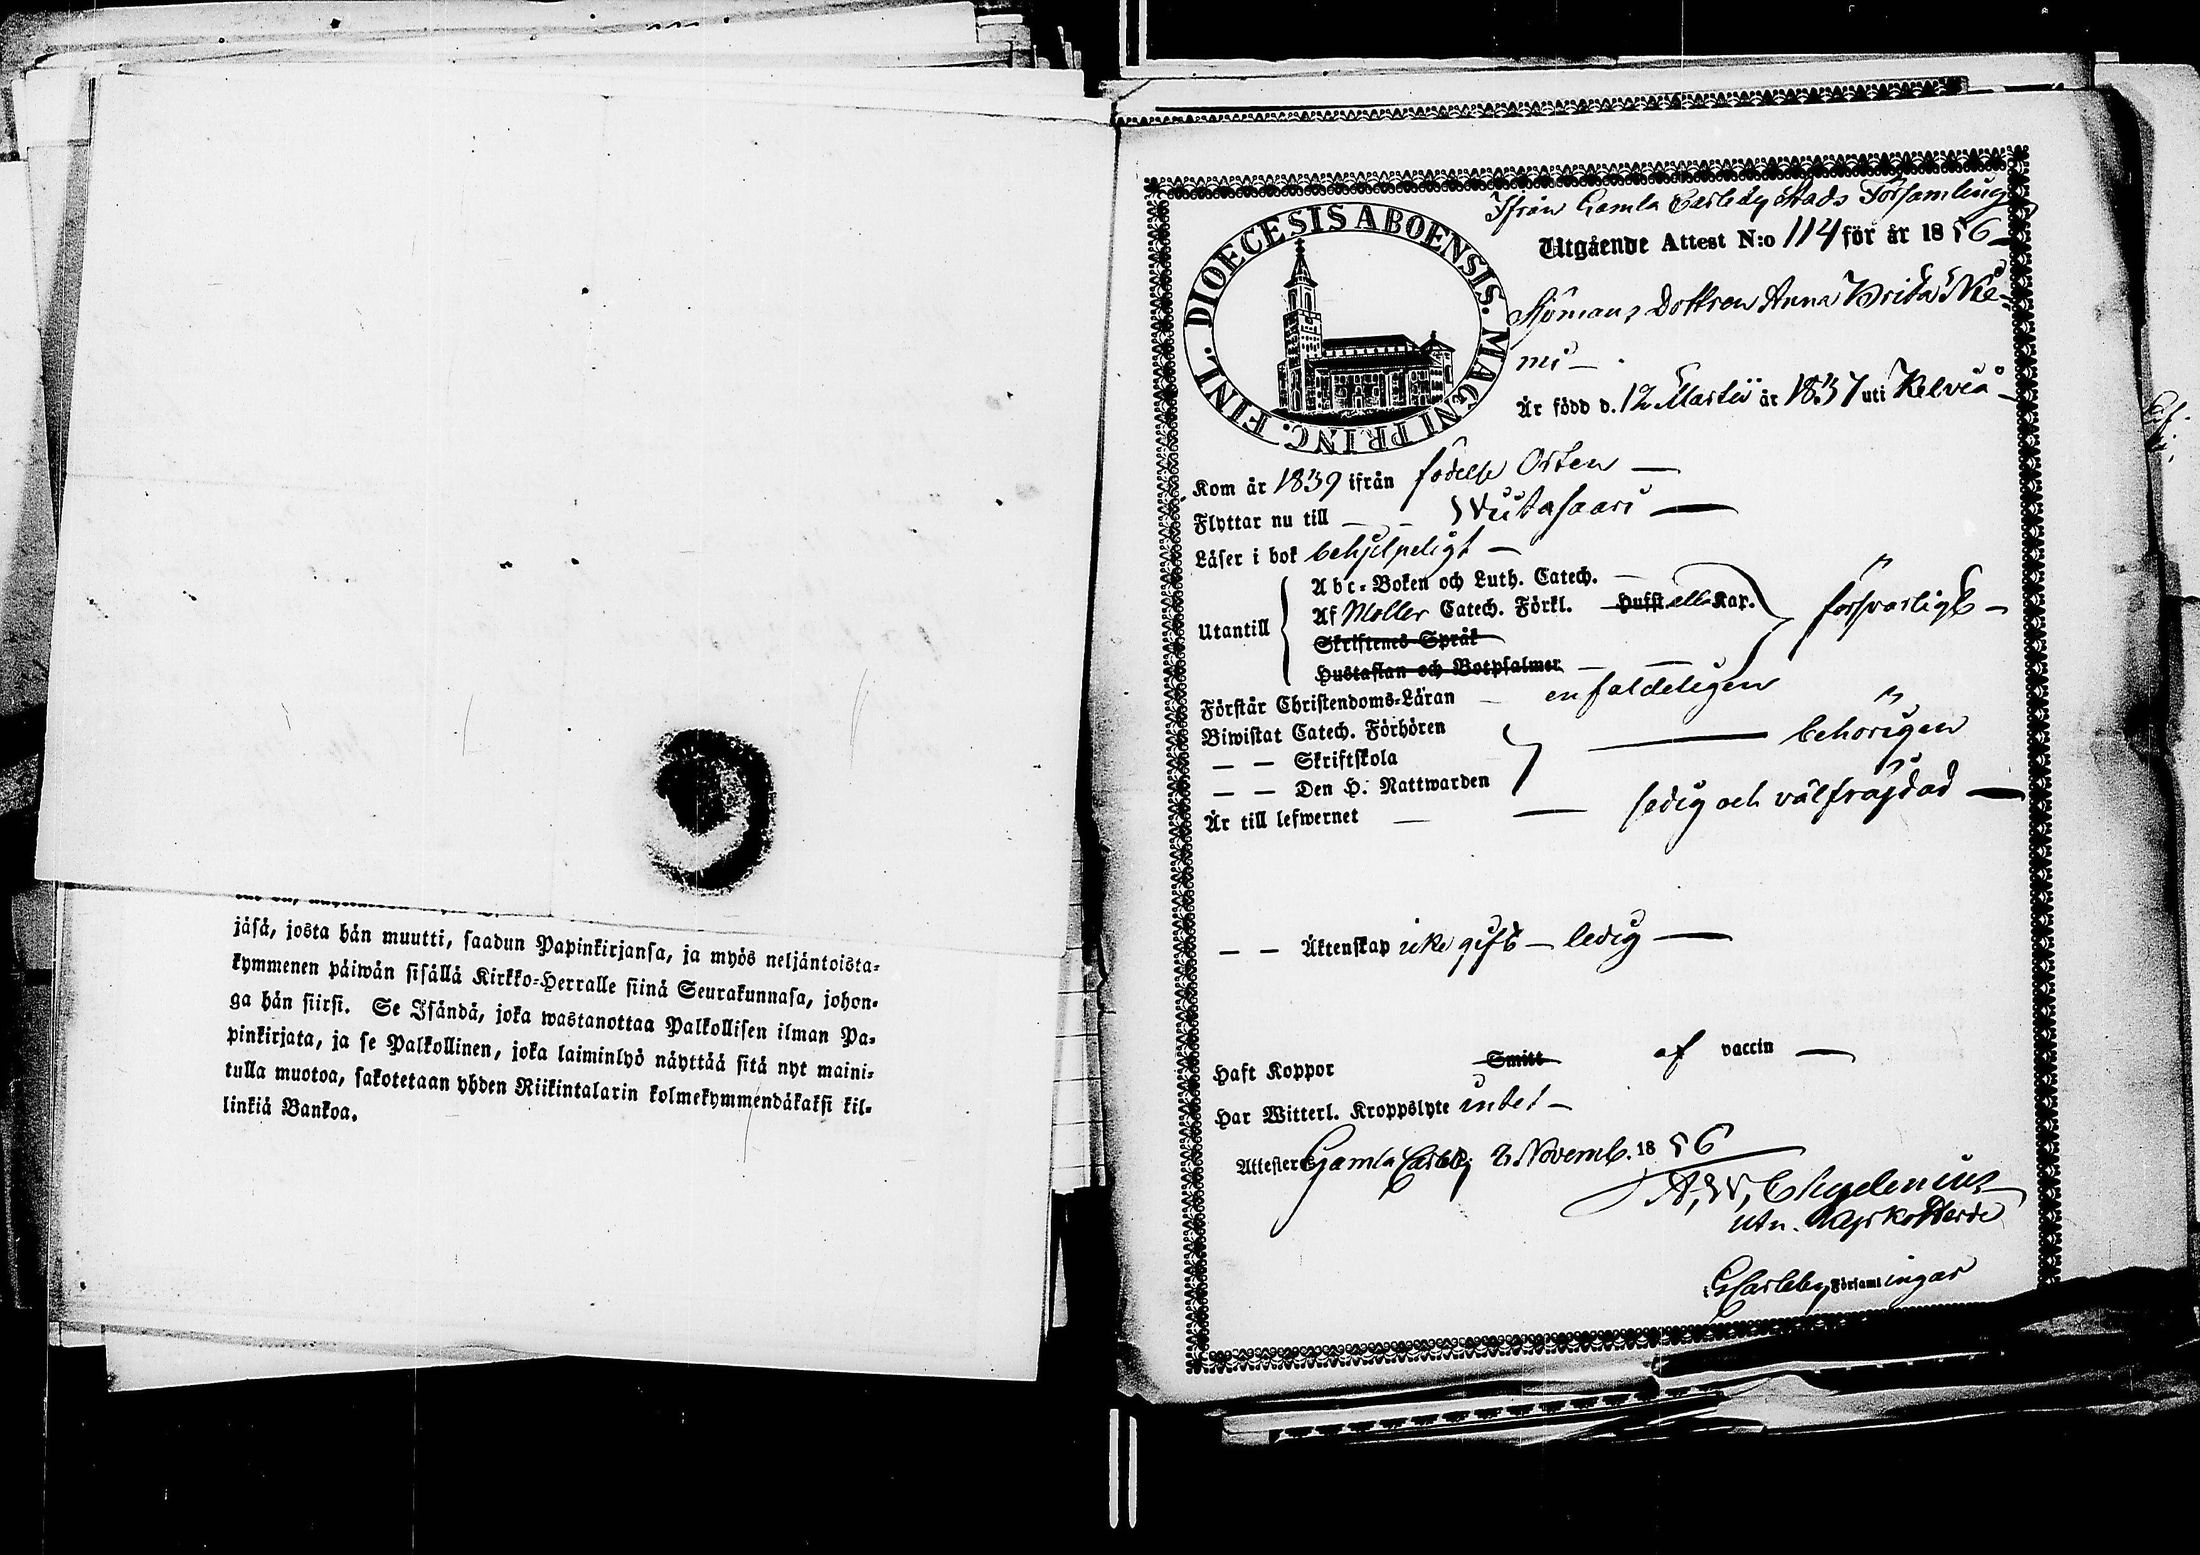 jäsä, josta hän muutti, saadun Papinkirjansa, ja myös neljäntoista-
kymmenen päiwän sisällä Kirkko-Herralle siinä Seurakunnasa, johon-
ga hän siirsi. Se Isändä, joka wastanottaa Palkollisen ilman Pa-
pinkirjata, ja se Palkollinen, joka laiminlyö näyttää sitä nyt maini-
tulla muotoa, sakotetaan yhden Riikintalarin kolmekymmendäkaksi kil-
linkiä Bankoa.
FINL. DIOECESIS ABOENSIS. MAGNI PRINC.
Ifrån Gamla Carleby Stads Församling
Utgående Attest N:o 114 för år 1856
Sjömans Dottren Anna Brita Nie-
mi —
Är född d. 12 Martii år 1837 uti Kelviå
Kom år 1839 ifrån födelse Orten —
Flyttar nu till — — Wiitasaari —
Läser i bok behjelpeligt —
Utantill
Abc-Boken och Luth. Catech. —
Af Möller Catech. Förkl. — Hufst Kap. försvarligt —
Skriftenes Språk
Hustaflan och Botpsalmer —
Förstår Christendoms-Läran — enfaldeligen
Biwistat Catech. Förhören
— — Skriftskola — behörigen
— — Den H. Nattwarden
Är till lefwernet — — sedig och välfräjdad —
— — Äktenskap icke gift — ledig —
Haft Koppor Smitt af vaccin —
Har Witterl. Kroppslyte intet —
Attesterar Gamla Carleby 2 Novemb. 1856
A. W. Chydenius
Kyrkoherde
GCarleby Församlingar